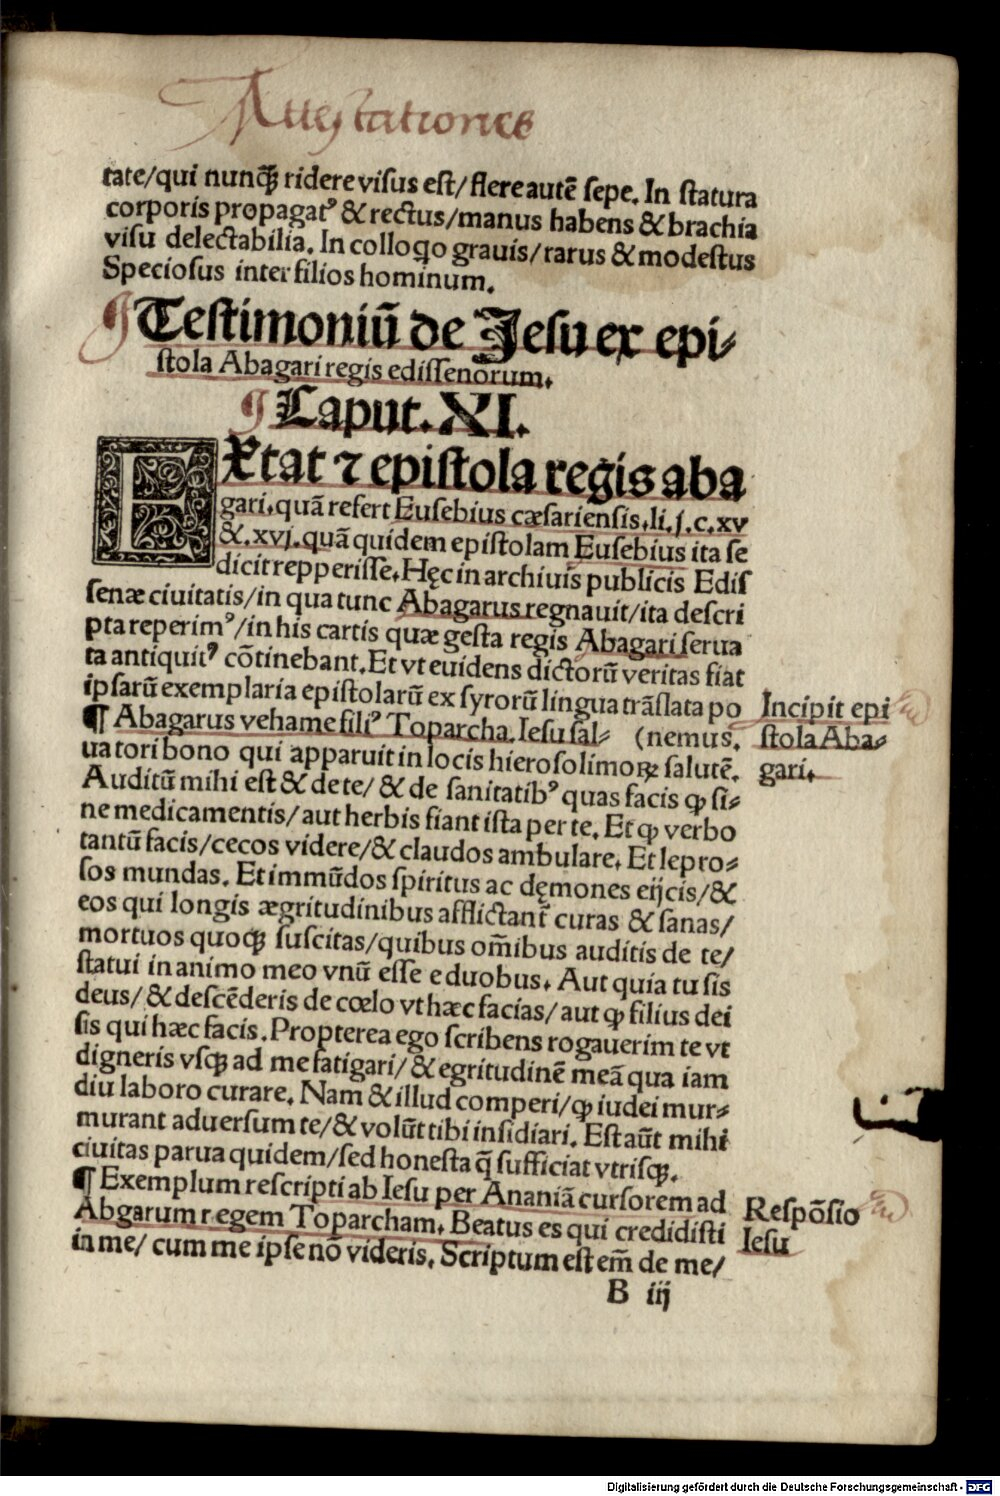 Attestationes
tate/qui nunq̃ ridere visus est/flere autē sepe. In statura
corporis propagatꝰ & rectus/manus habens & brachia
visu delectabilia. In colloq̨o grauis/rarus & modestus
Speciosus inter filios hominum.
¶Testimoniū de Jesu ex epi⸗
stola Abagari regis edissenorum.
¶Caput. XI.
EXtat ⁊ epistola regis aba
gari. quā refert Eusebius cæsariensis. li. j. c. xv
&. xvj. quā quidem epistolam Eusebius ita se
dicit repperisse. Hęc in archiuis publicis Edis
senæ ciuitatis/in qua tunc Abagarus regnauit/ita descri
pta reperimꝰ/in his cartis quæ gesta regis Abagari serua
ta antiquitꝰ cōtinebant. Et vt euidens dictorū veritas fiat
ipsarū exemplaria epistolarū ex syrorū lingua trāslata po
¶ Abagarus vehame filiꝰ Toparcha. Iesu sal⸗ (nemus.
uatori bono qui apparuit in locis hierosolimoꝝ salutē.
Auditū mihi est & de te/ & de sanitatibꝰ quas facis ꝙ si⸗
ne medicamentis/aut herbis fiant ista per te. Et ꝙ verbo
tantū facis/cecos videre/& claudos ambulare. Et lepro⸗
sos mundas. Et immūdos spiritus ac dęmones eijcis/&
eos qui longis ægritudinibus afflictant̃ curas & sanas/
mortuos quoqꝫ suscitas/quibus om̃ibus auditis de te/
statui in animo meo vnū esse e duobus. Aut quia tu sis
deus/& descēderis de cœlo vt hæc facias/aut ꝙ filius dei
sis qui hæc facis. Propterea ego scribens rogauerim te vt
digneris vsqꝫ ad me fatigari/ & egritudinē meā qua iam
diu laboro curare. Nam & illud comperi/ꝙ iudei mur⸗
murant aduersum te/& volūt tibi insidiari. Est aūt mihi
ciuitas parua quidem/sed honesta q̄ sufficiat vtrisqꝫ.
¶ Exemplum rescripti ab Iesu per Ananiā cursorem ad
Abgarum regem Toparcham. Beatus es qui credidisti
in me/ cum me ipse nō videris. Scriptum est em̄ de me/
B iij
Incipit epi
stola Aba⸗
gari.
Respōsio
Iesu
Digitalisierung gefördert durch die Deutsche Forschungsgemeinschaft - DFG